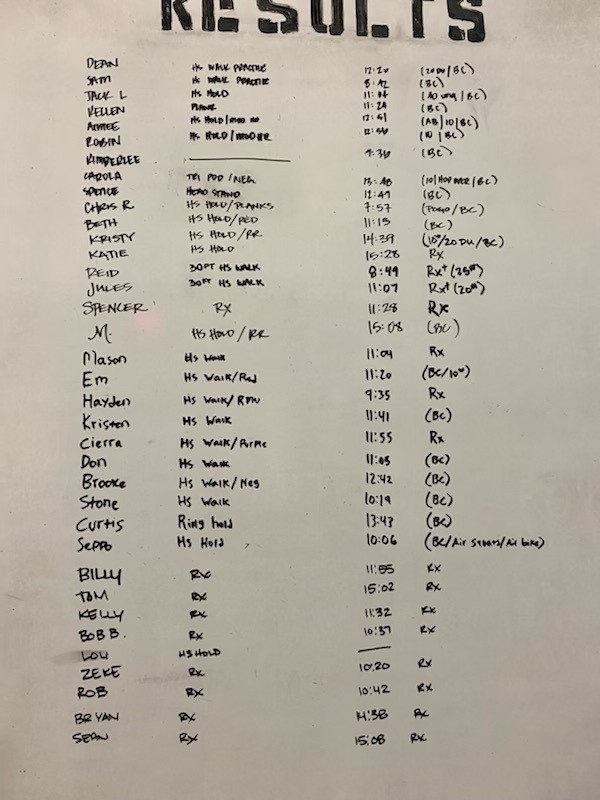 RESULTS
DEAN HS WALK PRACTICE 12:20 (20DU/BC)
SAM HS WALK PRACTICE 8:42 (BC)
JACK L HS HOLD 11:04 (BC)
KELLEN PLANK 11:24 (BC)
AIMEE HS HOLD/MOD 12:51 (AB/10/BC)
ROBIN HS HOLD/ 12:56 (10/BC)
KIMBERLEE 9:36 (BC)
CAROLA TRI POD/NEG 13:48 (10/HOP OVER/BC)
SPENCE HEAD STAND 12:47 (BC)
CHRIS R HS HOLD/PLANKS 7:57 (POGO/BC)
BETH HS HOLD/RED 11:15 (BC)
KRISTY HS HOLD/RR 14:39 (10#/20 DU/BC)
KATIE HS HOLD 15:28 RX
REID 30FT HS WALK 8:49 RX+ (25#)
JULES 30FT HS WALK 11:07 RX+ (20#)
SPENCER RX 11:28 RX
M. HS HOLD/RR 15:08 (BC)
Mason HS Walk 11:04 Rx
Em HS Walk/Red 11:20 (BC/10#)
Hayden HS Walk/ 9:35 Rx
Kristen HS Walk 11:41 (BC)
Cierra HS Walk/Purple 11:55 Rx
Don HS Walk 11:05 (BC)
Brooke HS Walk/Neg 12:42 (BC)
Stone HS Walk 10:19 (BC)
Curtis Ring hold 13:43 (BC)
Seppo HS Hold 10:06 (BC/Air Squats/Air bike)
BILLY RX 11:55 RX
TOM RX 15:02 RX
KELLY RX 11:32 RX
BOB B. RX 10:37 RX
LOU HS HOLD
ZEKE RX 10:20 RX
ROB RX 10:42 RX
BRYAN RX 14:38 RX
SEAN RX 15:08 RX